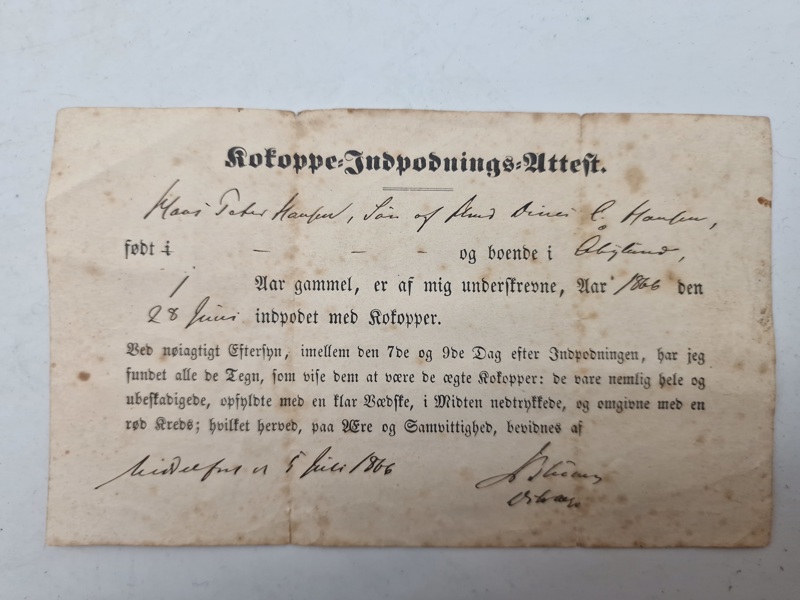 Kokoppe-Indpodnings-Attest.
Hans Peter Hansen, Søn af Hmd Dines C. Hansen,
født i - - - - og boende i Abylund,
1 Aar gammel, er af mig underskrevne, Aar 1866 den
28 Juni indpodet med Kokopper.
Ved nøiagtigt Eftersyn, imellem den 7de og 9de Dag efter Indpodningen, har jeg
fundet alle de Tegn, som vise dem at være de ægte Kokopper: de vare nemlig hele og
ubeskadigede, opfyldte med en klar Vædske, i Midten nedtrykkede, og omgivne med en
rød Kreds; hvilket herved, paa Ære og Samvittighed, bevidnes af
Middelfart 5 Juli 1866